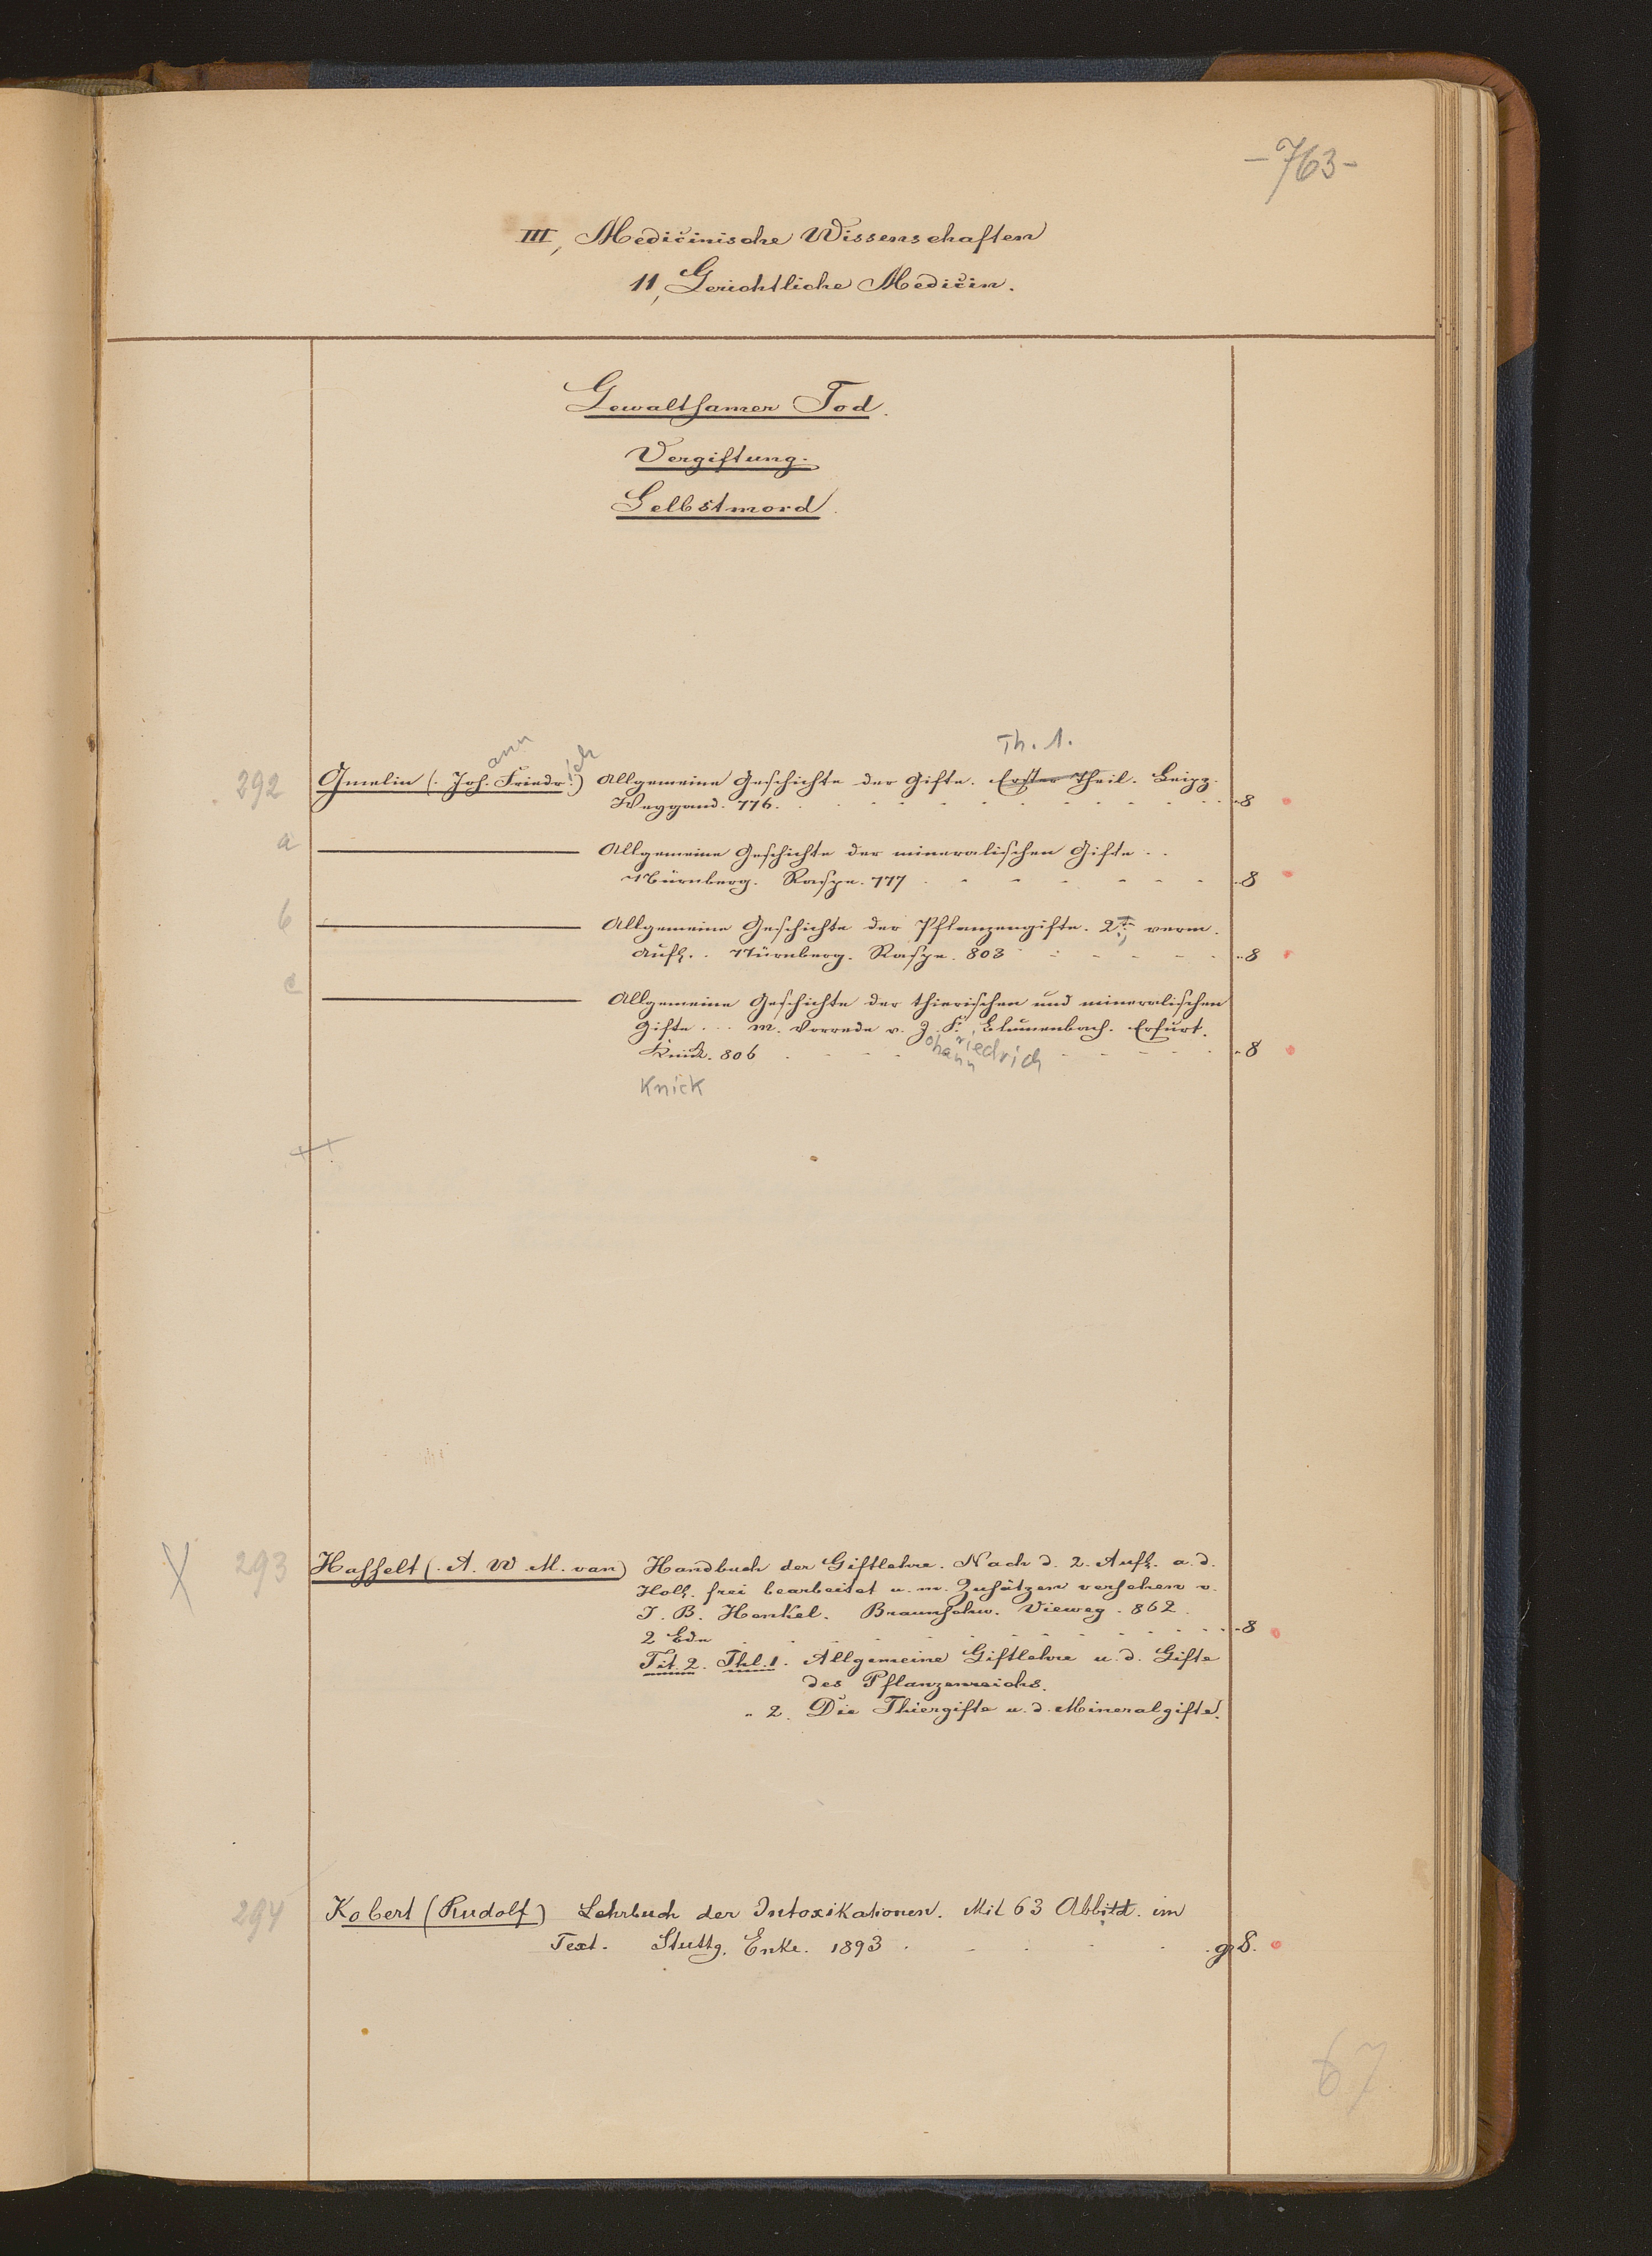 -763-
III, Medicinische Wissenschaften
11, Gerichtliche Medicin.
Gewaltsamer Tod.
Vergiftung.
Selbstmord.
Th. 1.
ann ich
292 Gmelin (. Joh. Friedr.) Allgemeine Geschichte der Gifte. Erster Theil. Leipz.
Weygand. 776. 8
a Allgemeine Geschichte der mineralischen Gifte ..
Nürnberg. Raspe. 777 8
b Allgemeine Geschichte der Pflanzengifte. 2te, verm.
Aufl. . Nürnberg. Raspe. 803 8
c Allgemeine Geschichte der thierischen und mineralischen
Gifte ... m. Vorrede v. J. F. Blumenbach. Erfurt.
ohann riedrich
Knick. 806 8
Knick
293 Hasselt (. A. W. M. van) Handbuch der Giftlehre. Nach d. 2. Aufl. a. d.
Holl. frei bearbeitet u. m. Zusätzen versehen v.
J. B. Henkel. Braunschw. Vieweg. 862.
2 Bde 8
Tit. 2. Thl. 1. Allgemeine Giftlehre u. d. Gifte
des Pflanzenreichs.
" 2. Die Thiergifte u. d. Mineralgifte.
294 Kobert (Rudolf) Lehrbuch der Intoxikationen. Mit 63 Abbild. im
Text. Stuttg. Enke. 1893 . gr 8.
67